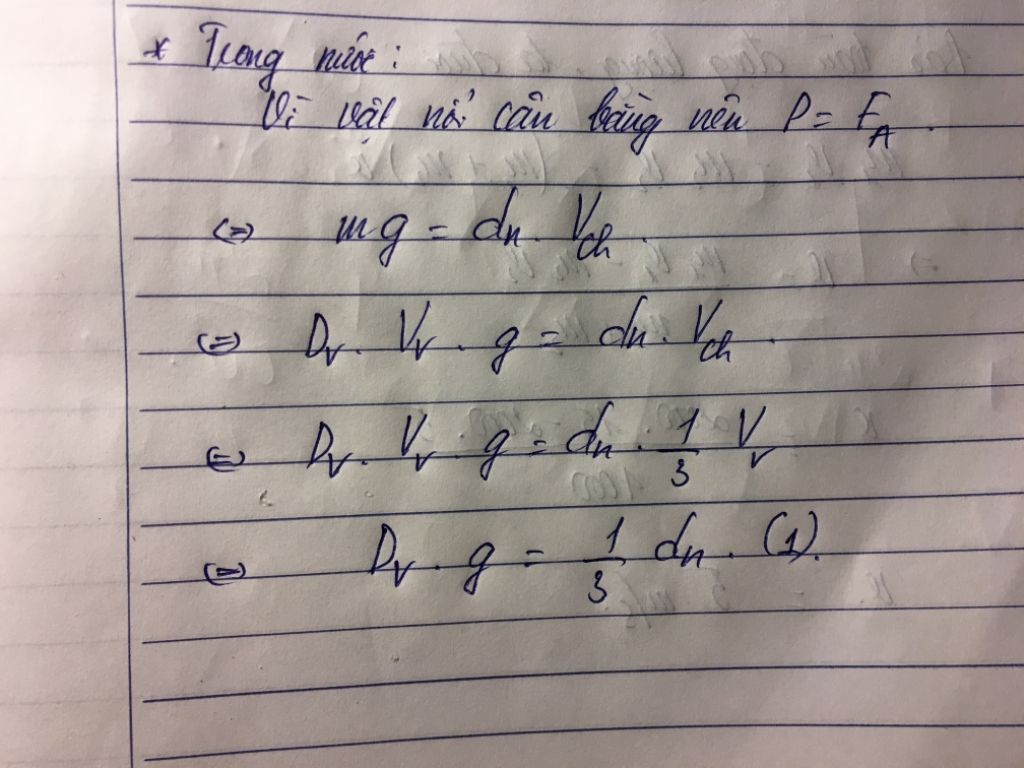 * Trong nước:
Vì vật nổi cân bằng nên P = F_A.
(=) mg = dn. V_ch.
(=) D_v. V_v. g = dn. V_ch.
(=) D_v. V_v. g = dn. 1/3 V_v
(=) D_v. g = 1/3 dn. (1).